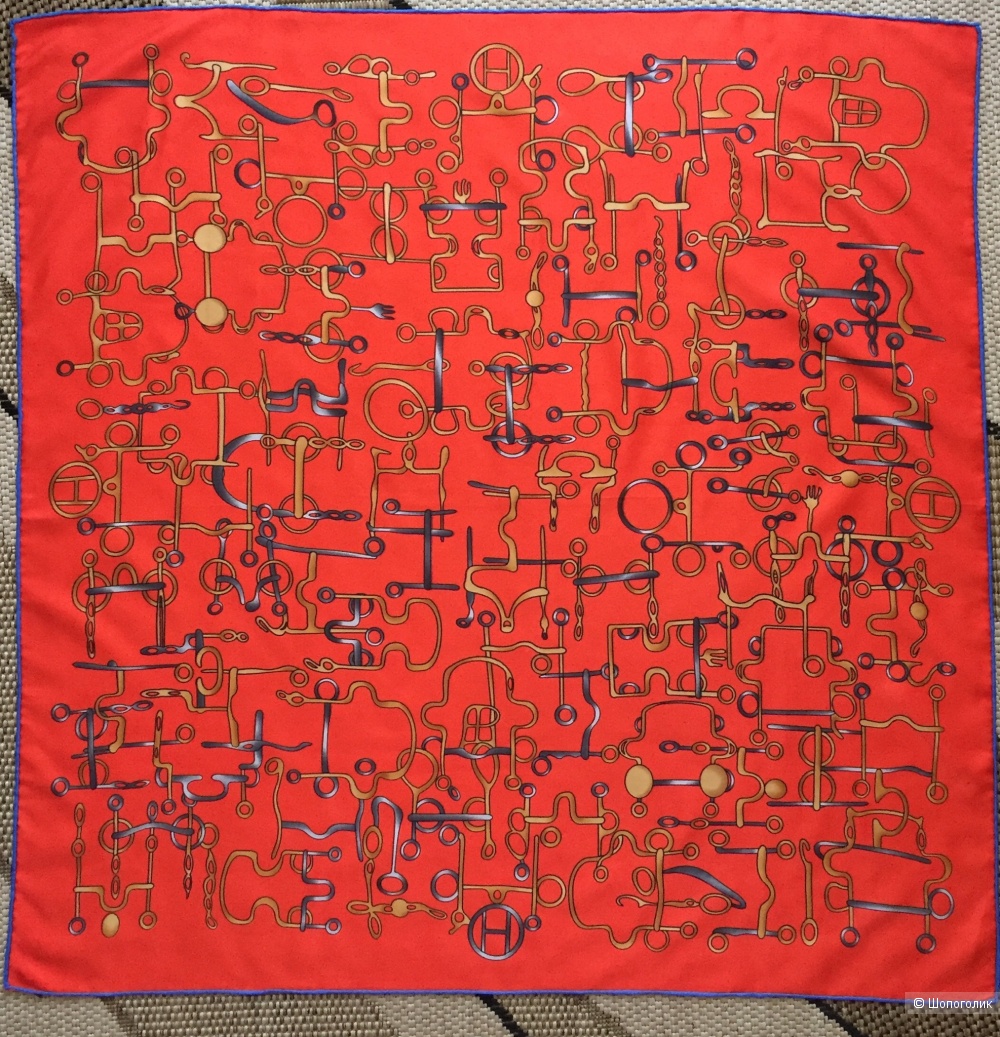 H
H
H
H
© Шопоголик